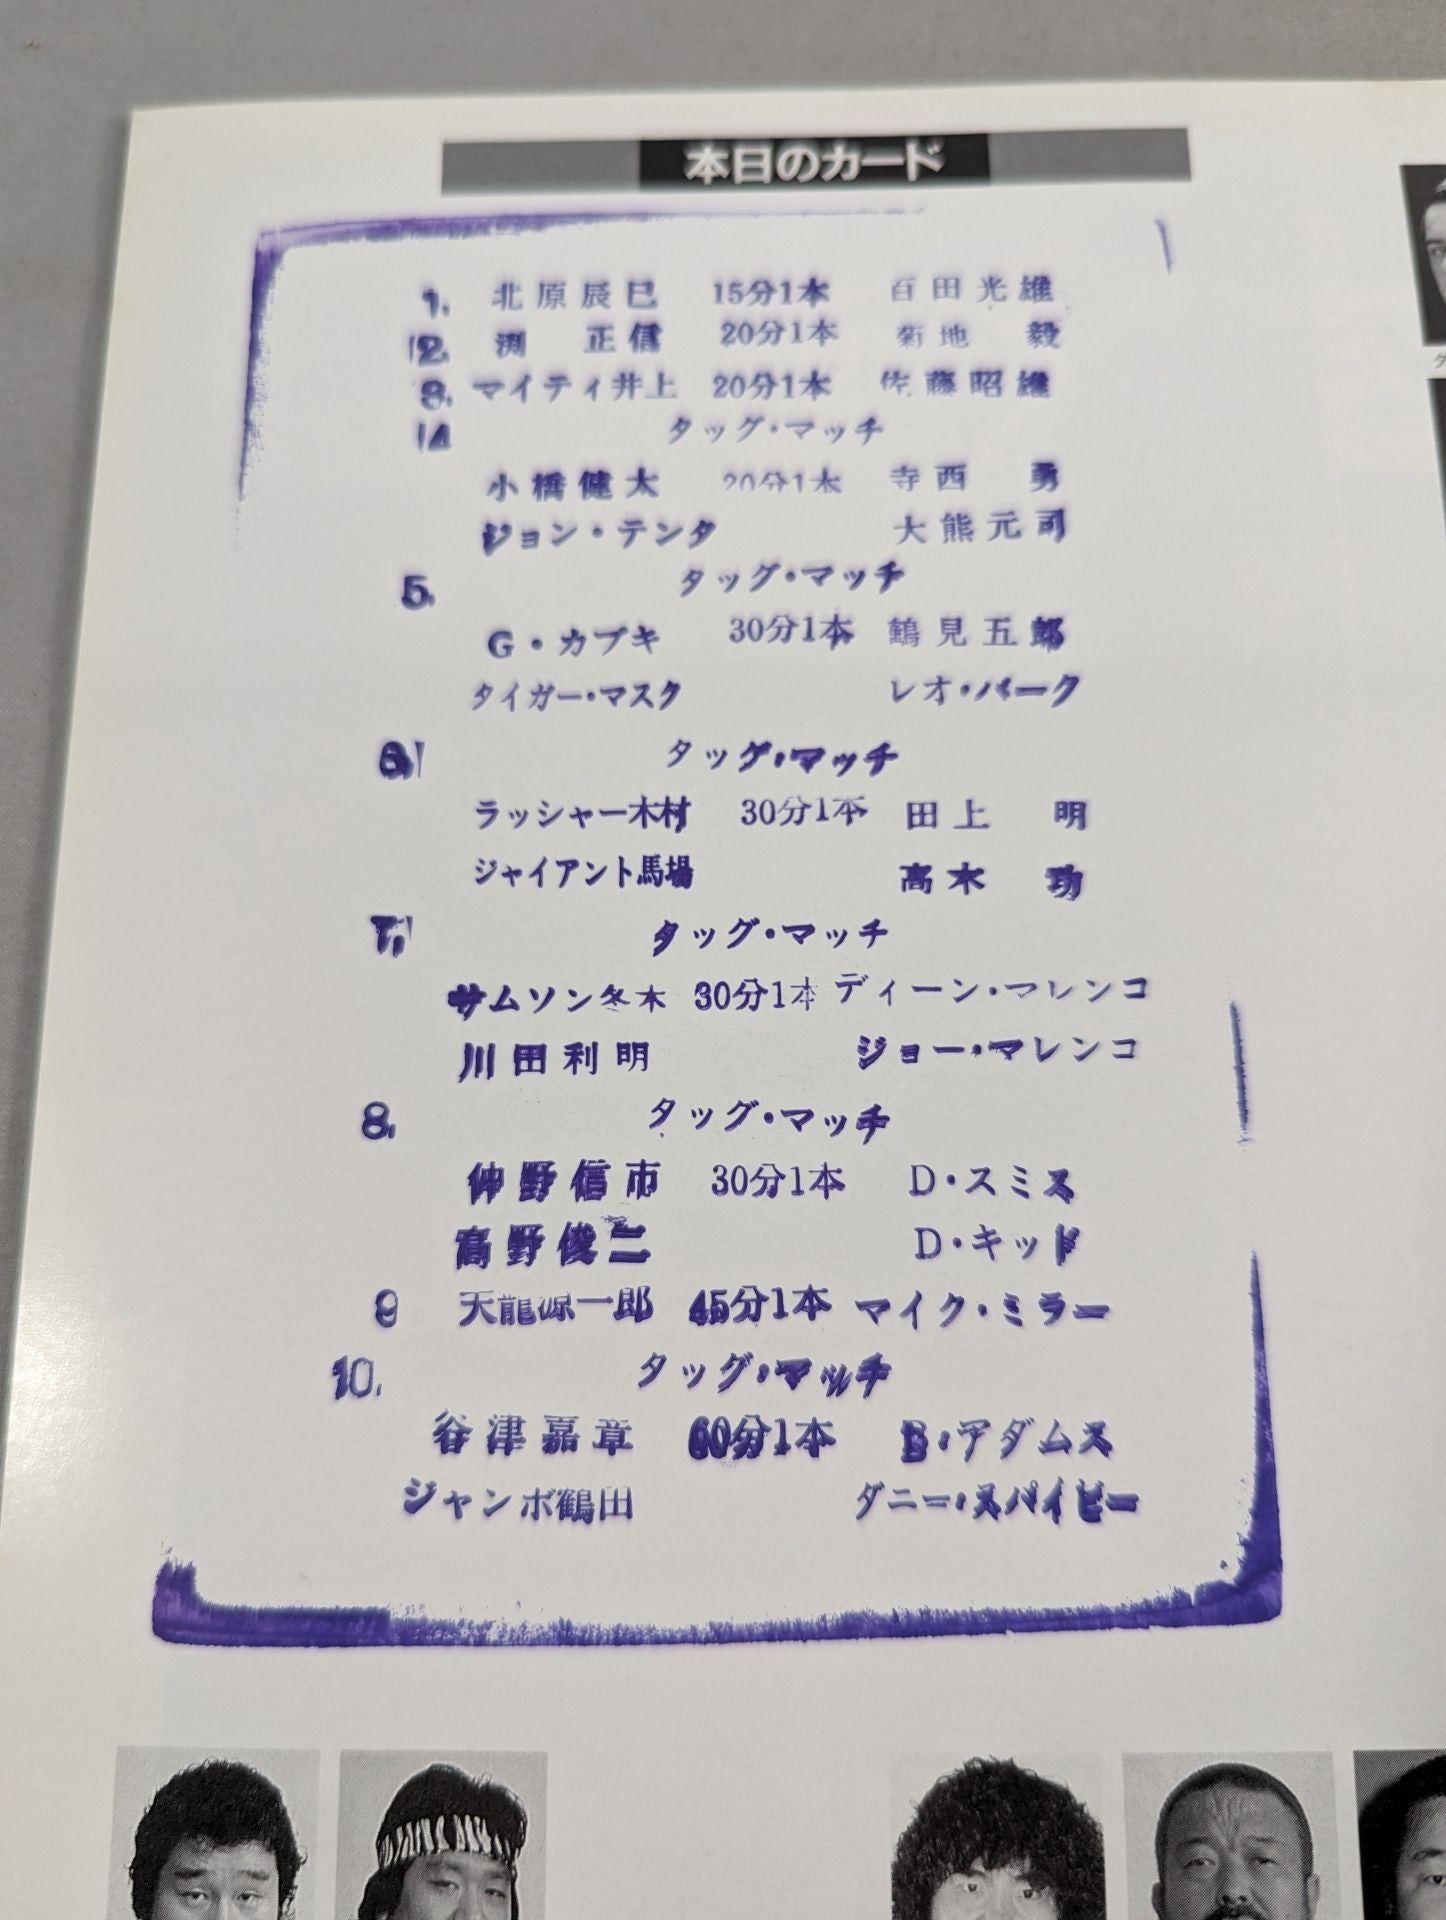 本日のカード
1. 北原辰巳 15分1本 百田光雄
2. 渕 正信 20分1本 菊地 毅
3. マイティ井上 20分1本 佐藤昭雄
4 タッグ・マッチ
小橋健太 20分1本 寺西 勇
ジョン・テンタ 大熊元司
5. タッグ・マッチ
G・カブキ 30分1本 鶴見五郎
タイガー・マスク レオ・バーク
6. タッグ・マッチ
ラッシャー木村 30分1本 田上 明
ジャイアント馬場 高木 功
7. タッグ・マッチ
サムソン冬木 30分1本 ディーン・マレンコ
川田利明 ジョー・マレンコ
8. タッグ・マッチ
仲野信市 30分1本 D・スミス
高野俊二 D・キッド
9 天龍源一郎 45分1本 マイク・ミラー
10. タッグ・マッチ
谷津嘉章 60分1本 B・アダムス
ジャンボ鶴田 ダニー・スパイビー